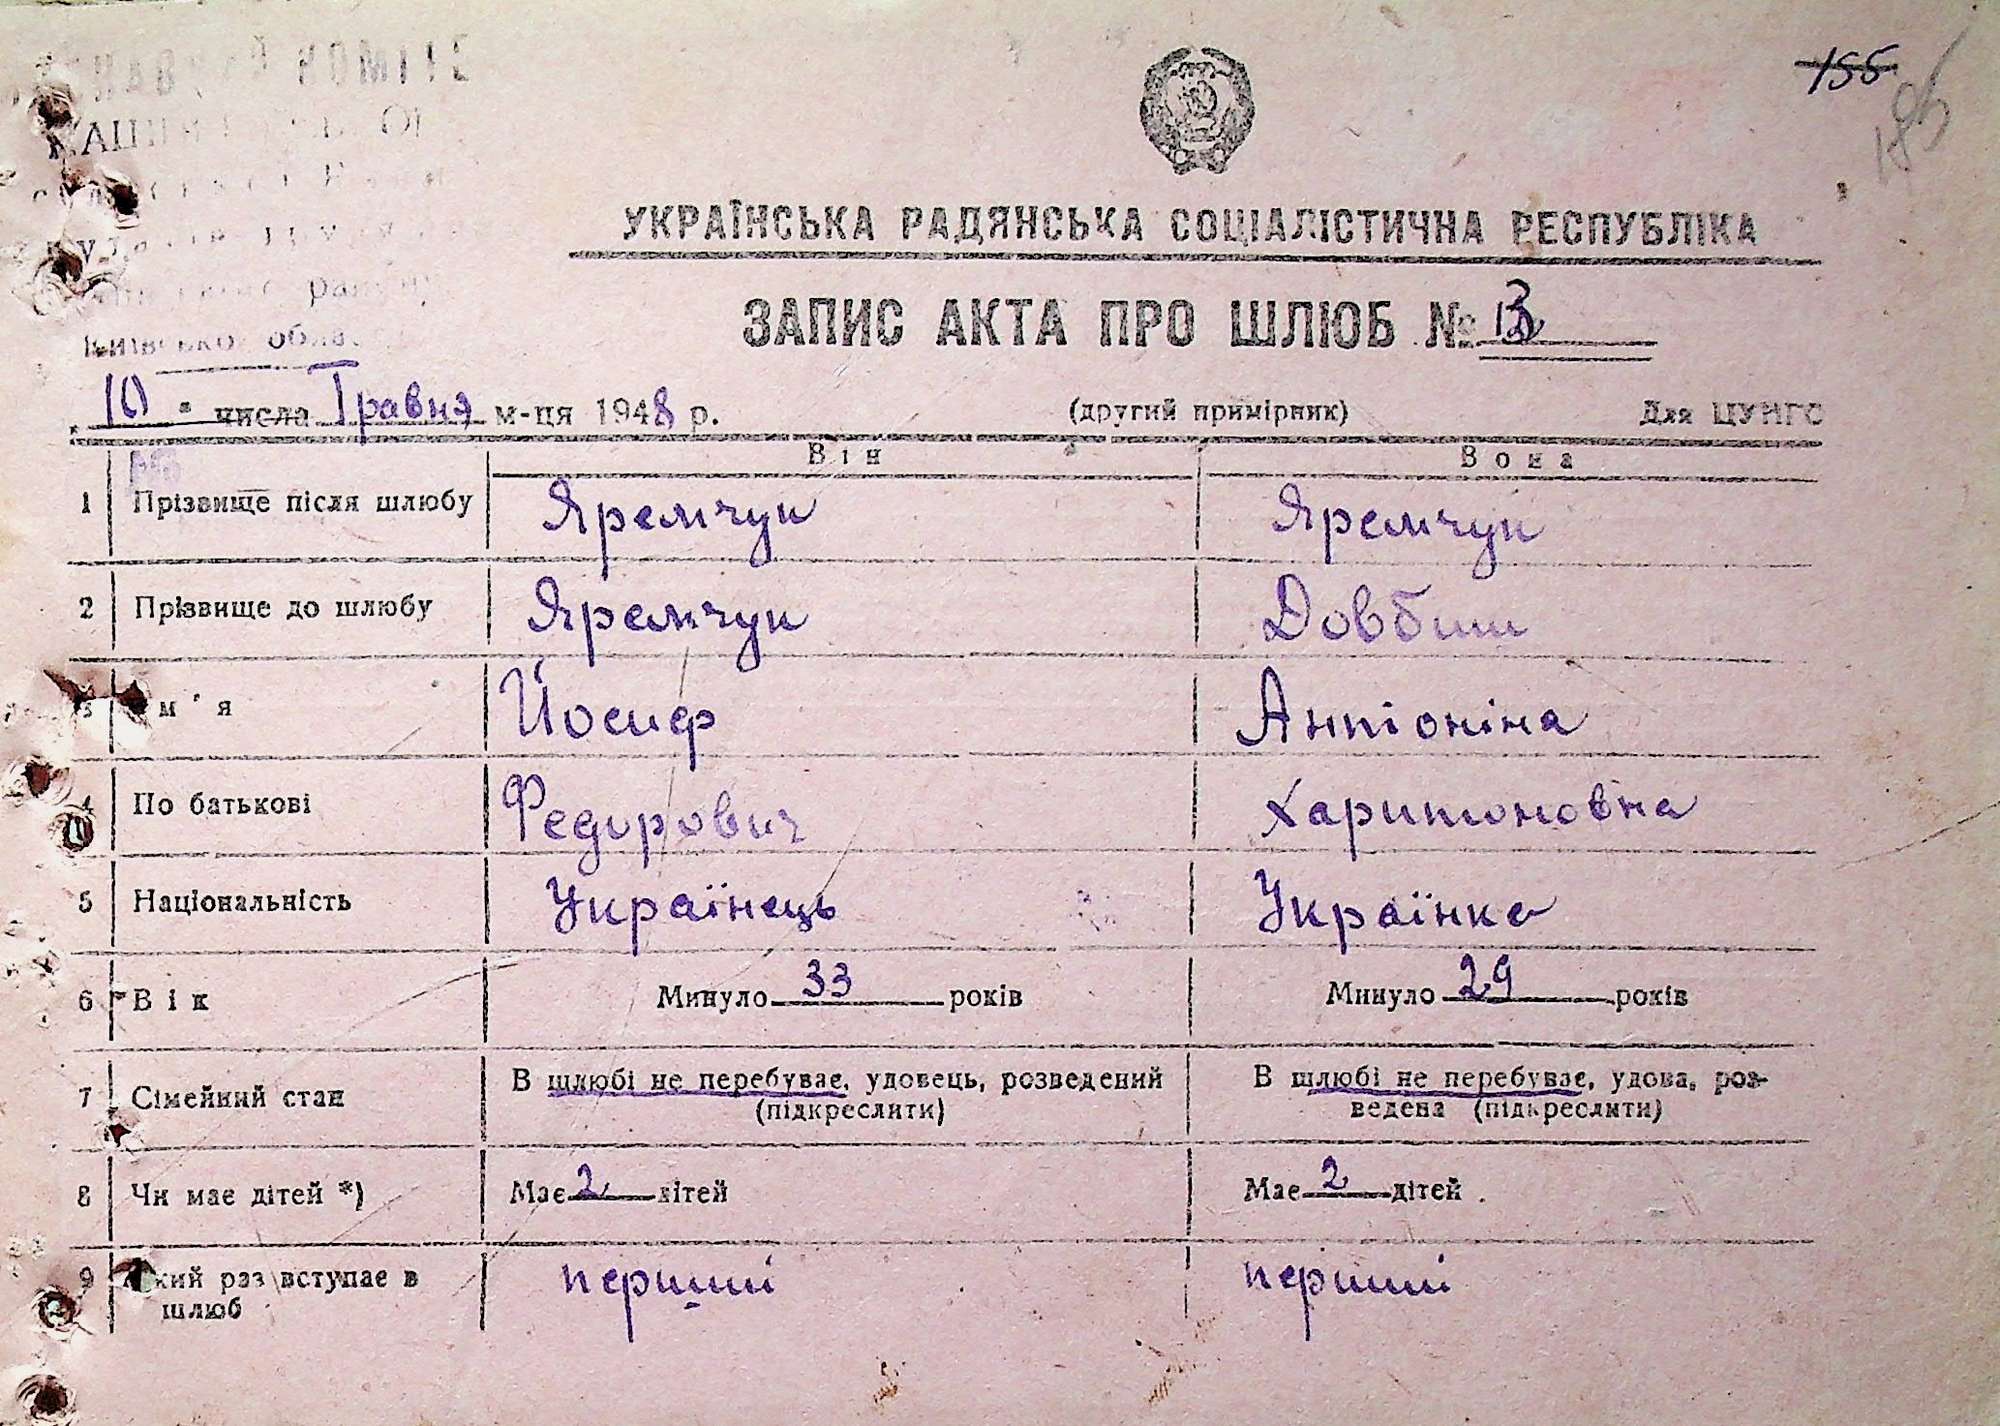 155
185
УКРАЇНСЬКА РАДЯНСЬКА СОЦІАЛІСТИЧНА РЕСПУБЛІКА
ЗАПИС АКТА ПРО ШЛЮБ №
обла
10 " числа Травня м-ця 1948 р. (другий примірник) Для ЦУНГС
Він Вона
1 Прізвище після шлюбу Яремчук Яремчук
2 Прізвище до шлюбу Яремчук Довбиш
м'я Йосиф Антоніна
4 По батькові Федорович Харитоновна
5 Національність Українець Українка
6 Вік Минуло 33 років Минуло 29 років
7 Сімейний стан В шлюбі не перебуває, удовець, розведений (підкреслити) В шлюбі не перебуває, удова, роз-
ведена (підкреслити)
8 Чи має дітей *) Має 2 дітей Має 2 дітей
9 кий раз вступає в
шлюб перший перший